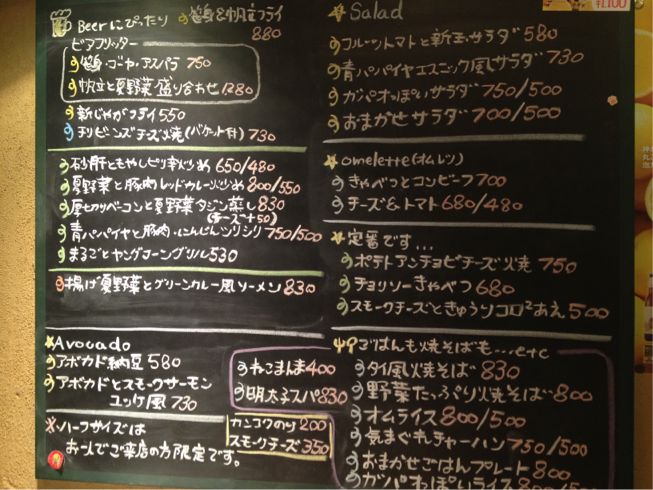 Beerにぴったり
鶏&帆立フライ
880
ビアフリッター
鶏・ゴーヤ・アスパラ 750
帆立と夏野菜盛り合わせ 1280
新じゃがフライ 550
チリビーンズチーズ焼(バケット付) 730
砂肝ともやしピリ辛炒め 650/480
夏野菜と豚肉レッドカレー炒め 800/550
厚切りベーコンと夏野菜タジン蒸し 830
(チーズ+50)
青パパイヤと豚肉・にんじんシリシリ 750/500
まるごとヤングコーングリル 530
揚げ夏野菜とグリーンカレー風ソーメン 830
Avocado
アボカド納豆 580
アボカドとスモークサーモン
ユッケ風 730
※・ハーフサイズは
お一人でご来店の方限定です。
カンコクのり 200
スモークチーズ 350
ねこまんま 400
明太子スパ 830
¥1,100
Salad
フルーツトマトと新玉サラダ 580
青パパイヤエスニック風サラダ 730
ガパオっぽいサラダ 750/500
おまかせサラダ 700/500
omelette(オムレツ)
きゃべつとコンビーフ 700
チーズ&トマト 680/480
定番です...
ポテトアンチョビチーズ焼 750
チョリソーきゃべつ 680
スモークチーズときゅうりコロコロあえ 500
ごはんも焼そばも...etc
タイ風焼そば 830
野菜たっぷり焼そば 800
オムライス 800/500
気まぐれチャーハン 750/500
おまかせごはんプレート 800
ガパオっぽいライス 800/500